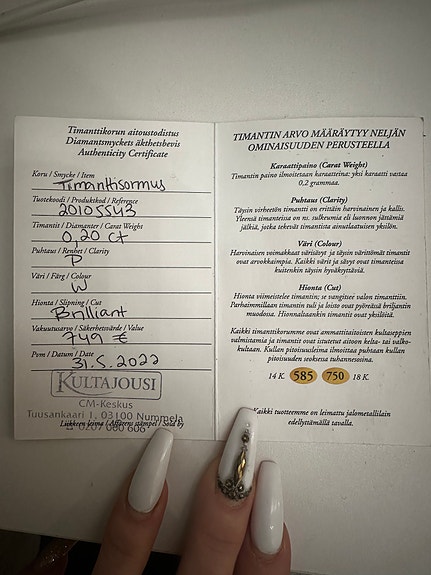 Timanttikorun aitoustodistus
Diamantsmyckets äkthetsbevis
Authenticity Certificate
Koru / Smycke / Item
Timanttisormus
Tuotekoodi / Produktkod / Reference
20105543
Timantit / Diamanter / Carat Weight
0,20 ct
Puhtaus / Renhet / Clarity
P
Väri / Färg / Colour
W
Hionta / Slipning / Cut
Brilliant
Vakuutusarvo / Säkerhetsvärde / Value
749 €
Pvm / Datum / Date
31.5.2022
KULTAJOUSI
CM-Keskus
Tuusankaari 1, 03100 Nummela
Liikkeen leima / Affärens stämpel / Sold by
TIMANTIN ARVO MÄÄRÄYTYY NELJÄN
OMINAISUUDEN PERUSTEELLA
Karaattipaino (Carat Weight)
Timantin paino ilmoitetaan karaatteina: yksi karaatti vastaa
0,2 grammaa.
Puhtaus (Clarity)
Täysin virheetön timantti on erittäin harvinainen ja kallis.
Yleensä timanteissa on ns. sulkeumia eli luonnon jättämiä
jälkiä, jotka tekevät timantista ainutlaatuisen yksilön.
Väri (Colour)
Harvinaisen voimakkaat värisävyt ja täysin värittömät timantit
ovat arvokkaimpia. Kaikki värit ja sävyt ovat timanteissa
kuitenkin täysin hyväksyttäviä.
Hionta (Cut)
Hionta viimeistelee timantin; se vangitsee valon timanttiin.
Parhaimmillaan timantin tuli ja loisto ovat pyöreissä briljantin
muodossa. Hionnaltaankin timantit ovat yksilöitä.
Kaikki timanttikorumme ovat ammattitaitoisten kultaseppien
valmistamia ja timantit ovat istutettu aitoon kelta- tai valko-
kultaan. Kullan pitoisuusleima ilmoittaa puhtaan kullan
pitoisuuden seoksessa tuhannesosina.
14 K. 585 750 18 K.
Kaikki tuotteemme on leimattu jalometallilain
edellyttämällä tavalla.